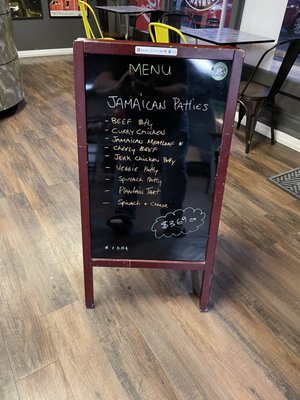 MENU
JAMAICAN PATTIES
- BEEF Patty
- CURRY CHICKEN
- JAMAICAN MEATLOAF &
CHEESY BEEF
- JERK CHICKEN Patty
- VEGGIE Patty
- Spinach Patty
- Plantain Tart
- Spinach & Cheese
$3.69 ea